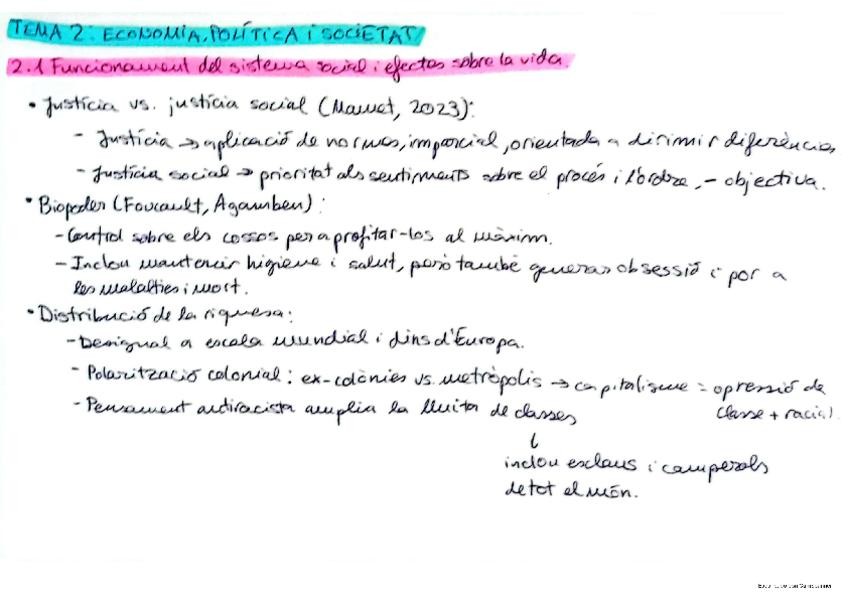 TEMA 2: ECONOMIA, POLÍTICA I SOCIETAT
2.1 Funcionament del sistema social i efectes sobre la vida.
• Justícia vs. justícia social (Mauet, 2023):
- Justícia → aplicació de normes, imparcial, orientada a dirimir diferències
- Justícia social → prioritat als sentiments sobre el procés i l'ordre, - objectiva.
• Biopoder (Foucault, Agamben):
- Control sobre els cossos per aprofitar-los al màxim.
- Inclou mantenir higiene i salut, però també generar obsessió i por a
les malalties i mort.
• Distribució de la riquesa:
- Desigual a escala mundial i dins d'Europa.
- Polarització colonial: ex-colònies vs. metròpolis → capitalisme = opressió de
classe + racial.
- Pensament antiracista amplia la lluita de classes
inclou esclaus i camperols
de tot el món.